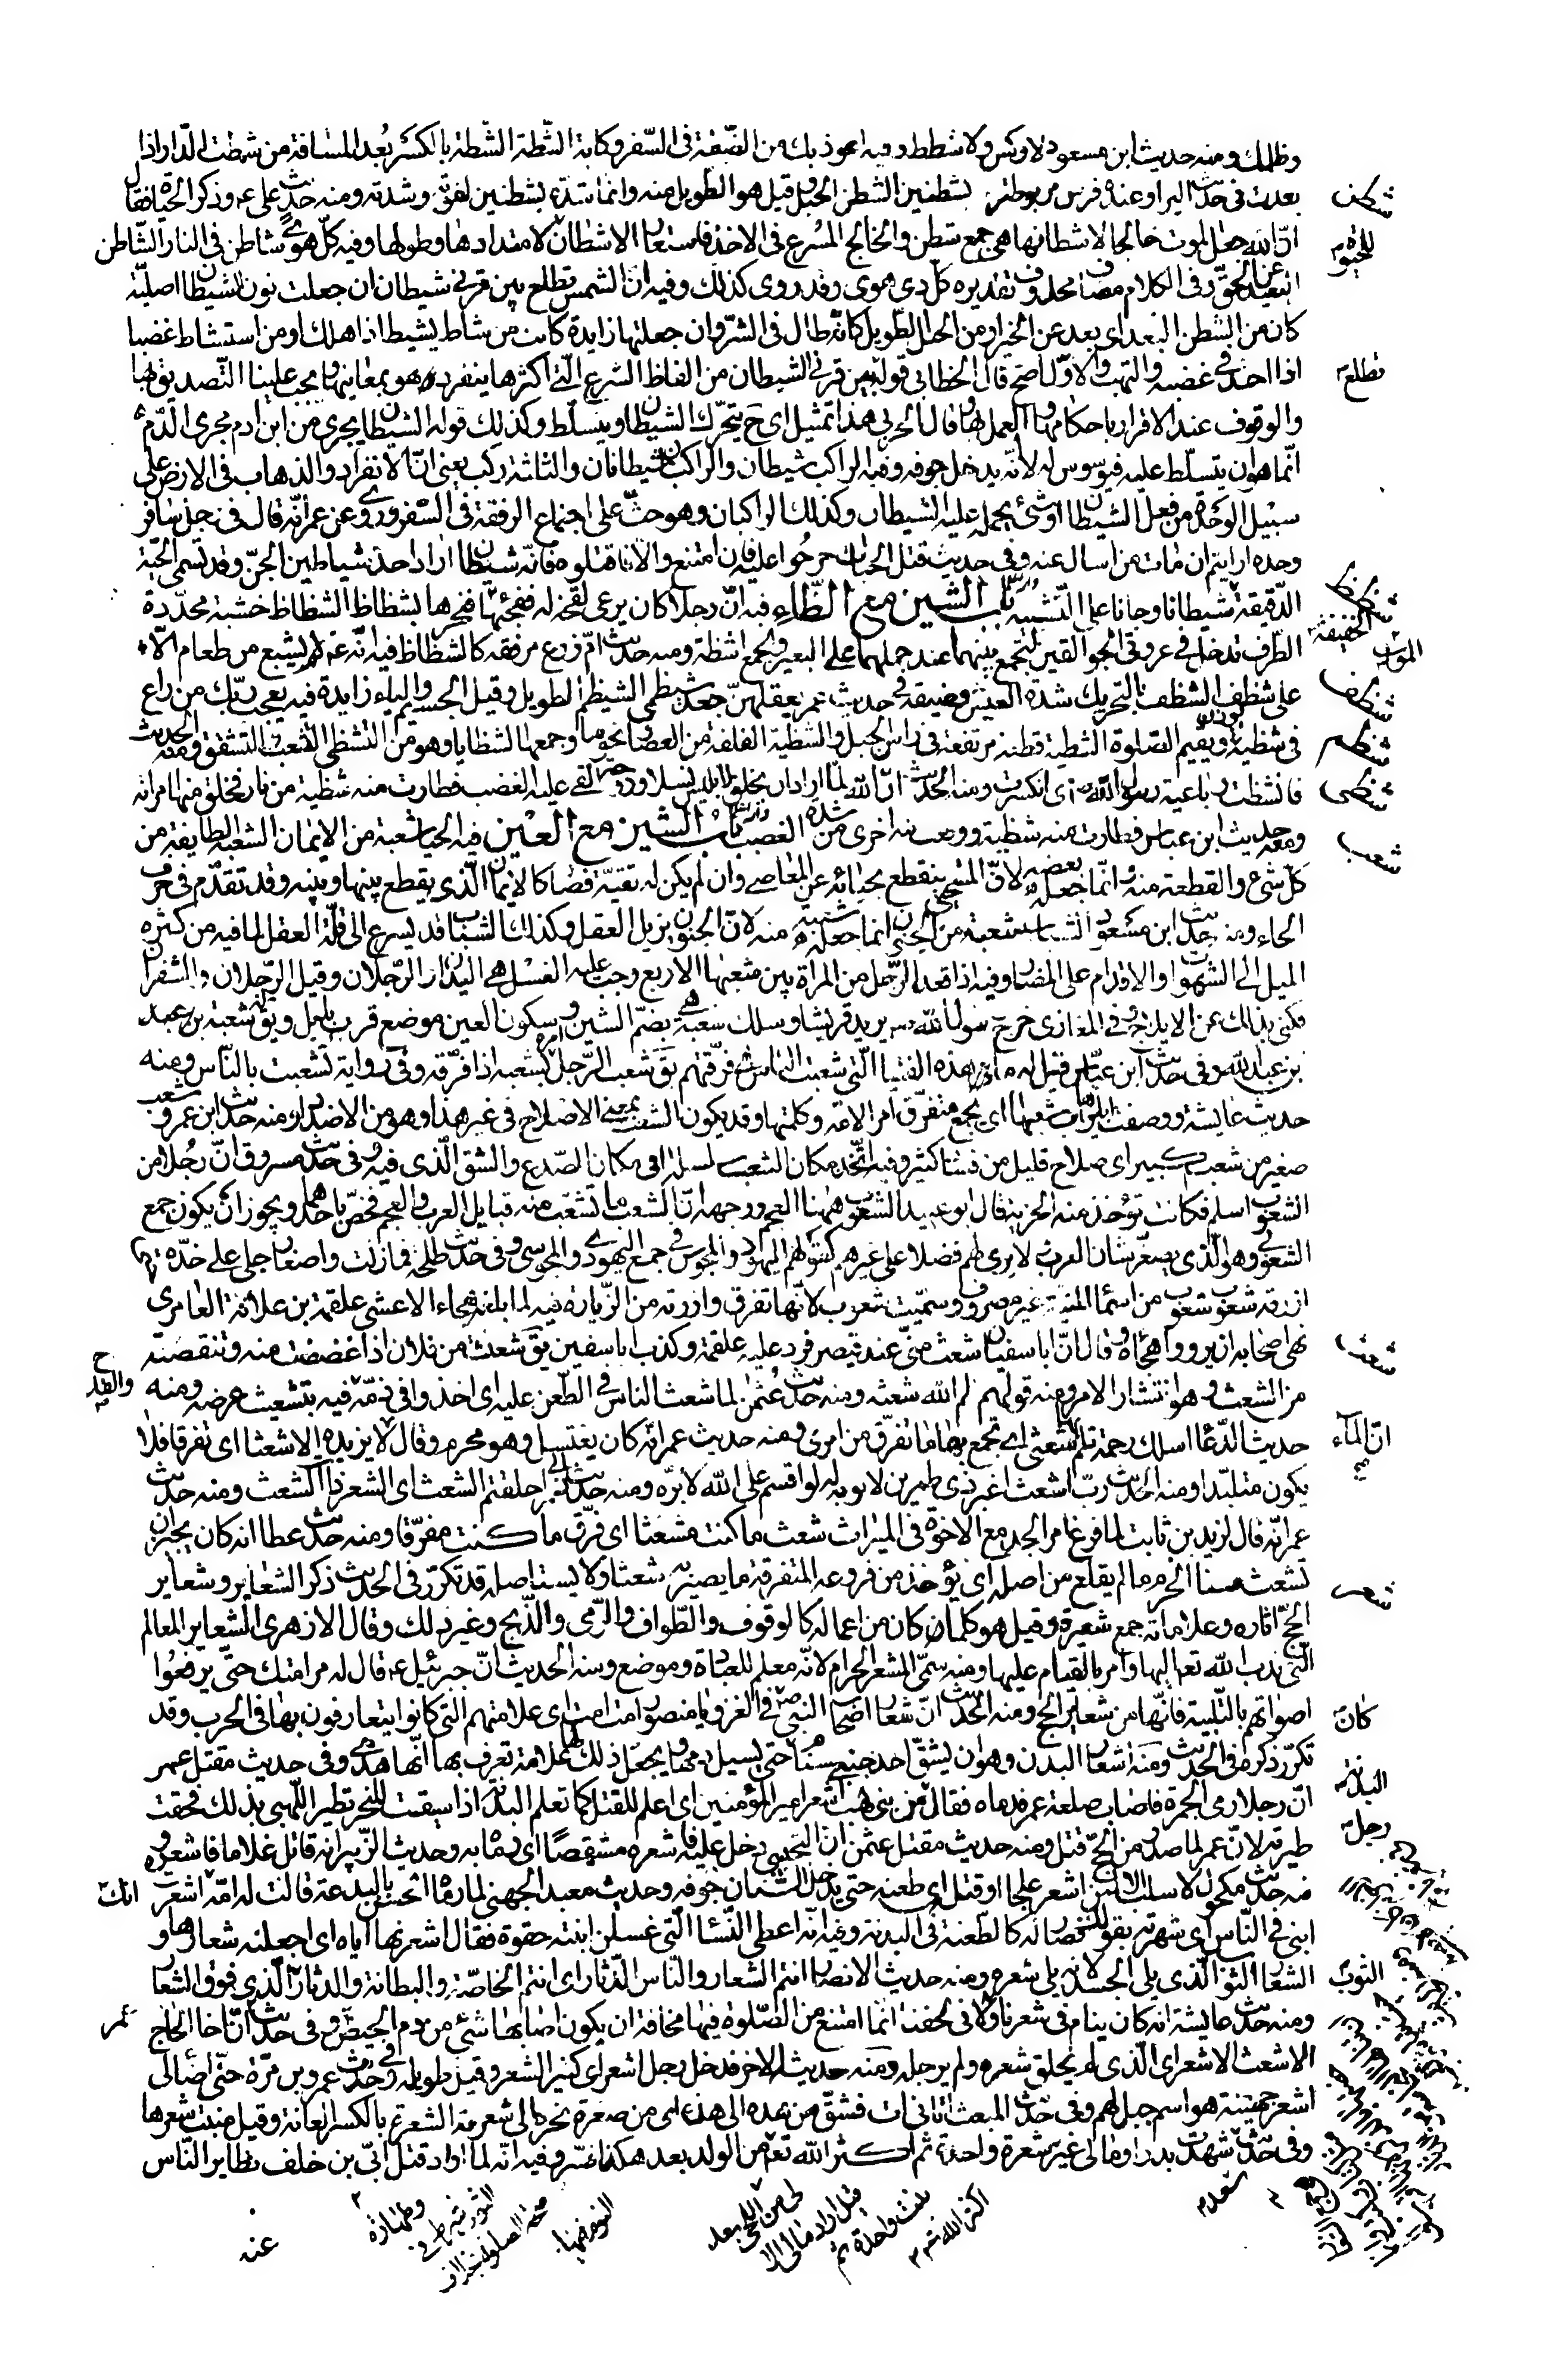 وظلمك ومنه حديث ابن مسعود لا وكس ولا شطط وفيه اعوذ بك من الضبنة فى السّفر وكابة الشّطة الشّطة بالكسر بُعد المسافة من شطت الدّار اذا
بعدت فى حديث البراء وعنده فرس مربوطة بشطنين الشطن الحبل وقيل هو الطويل منه وانما شدّه بشطنين لقوّته وشدته ومنه حديث على عم وذكر الحياة فقال
انّ الله جعل الموت خالجا لاشطانها هى جمع شطن والخالج المسرع فى الاخذ فاستعار الاشطان لامتدادها وطولها وفيه كل هوى شاطن فى النار الشّاطن
البعيد عن الحقّ وفى الكلام مضاف محذوف تقديره كل ذى هوى وقد روى كذلك وفيه انّ الشمس تطلع بين قرنى شيطان ان جعلت نون الشيطان اصليّة
كان من الشطن البعد اى بعد عن الخير او من الحبل الطويل كانّه طال فى الشرّ وان جعلتها زايدة كانت من شاط يشيط اذا هلك او من استشاط غضبا
اذا احتدّ فى غضبه والتهب والاوّل اصح قال الخطابى قوله بين قرنى الشيطان من الفاظ الشرع الّتى اكثرها ينفرد هو بمعانيها ويجب علينا التّصديق بها
والوقوف عند الاقرار باحكامها والعمل بها وقال الحربى هذا تمثيل اى ح يتحرّك الشيطان ويتسلّط وكذلك قوله الشيطان يجرى من ابن ادم مجرى الدّم
انّما هو ان يتسلّط عليه فيوسوس له لا انّه يدخل جوفه وفيه الراكب شيطان والراكبان شيطانان والثلثة ركب يعنى انّ الانفراد والذهاب فى الارض على
سبيل الوحدة من فعل الشيطان او شئ يحمله عليه الشيطان وكذلك الراكبان وهو حثّ على اجتماع الرفقة فى السّفر وروى عن عمر انّه قال فى رجل سافر
وحده ارايتم ان مات من اسال عنه وفى حديث قتل الحيات حرجوا عليه فان امتنع والّا فاقتلوه فانّه شيطان اراد احد شياطين الجنّ وقد تسمى الحيّة
الدّقيقة شيطانا وجانا على التّشبيه باب الشين مع الظّاء فيه انّ رجلا كان يرعى لقحة له ففجئها الموت فنحرها بشظاظ الشظاظ خشبة محدّدة
الطرف تدخل فى عروتى الجوالقين لتجمع بينهما عند حملهما على البعير والجمع اشظة ومنه حديث امّ زرع مرفقه كالشظاظ فيه انّه عم لم يشبع من طعام الّا
على شظف الشظف بالتحريك شدة العيش وضيقه فى حديث عمر يعقلهنّ جعد شيظمى الشيظم الطويل وقيل الجسيم والياء زايدة فيه يعجب ربّك من راع
فى شظية يؤذن ويقيم الصّلوة الشظية قطعة مرتفعة فى راس الجبل والشظية الفلقة من العصا ونحوها وجمعها الشظايا وهو من التشظى التشعب والتشقق ومنه الحديث
فانشظت رباعية رسول الله ص اى انكسرت ومنه الحديث انّ الله لمّا اراد ان يخلق لابليس نسلا وزوجة القى عليه الغضب فطارت منه شظية من نار فخلق منها امراته
ومنه حديث ابن عباس فطارت منه شظية ووقعت منه اخرى من شدة الغضب باب الشين مع العين فيه الحياء شعبة من الايمان الشعبة الطايفة من
كلّ شئ والقطعة منه وانّما جعله بعضه لانّ المستحيى ينقطع بحيائه عن المعاصى وان لم يكن له تقيّة فصار كالايمان الّذى يقطع بينها وبينه وقد تقدّم فى حرف
الحاء ومنه حديث ابن مسعود الشباب شعبة من الجنون انما جعله شعبة منه لانّ الجنون يزيل العقل وكذلك الشباب قد يسرع الى قلّة العقل لما فيه من كثرة
الميل الى الشهوات والاقدام على المضار وفيه اذا قعد الرّجل من المراة بين شعبها الاربع وجب عليه الغسل هى اليدان والرّجلان وقيل الرّجلان والشفران
فكنى بذلك عن الايلاج وفى المغازى خرج رسول الله ص يريد قريشا وسلك شعبة هى بضمّ الشين وسكون العين موضع قرب يليل ويق له شعبة بن عبد
بن عبد الله وفى حديث ابن عبّاس قيل له ما هذه الفتيا الّتى شعبت الناس اى فرّقتهم يق شعب الرّجل امره يشعبه اذا فرّقه وفى رواية تشعبت بالنّاس ومنه
حديث عايشة ووصفت اباها يراب شعبها اى يجمع متفرّق امر الامّة وكلمتها وقد يكون الشعب بمعنى الاصلاح فى غير هذا وهو من الاضداد ومنه حديث ابن عمر وشعب
صغير من شعب كبير اى صلاح قليل من فساد كثير وفيه اتّخذ مكان الشعب سلسلة اى مكان الصّدع والشق الّذى فيه وفى حديث مسروق انّ رجلا من
الشعوب اسلم فكانت تؤخذ منه الجزية قال ابو عبيد الشعوب ههنا العجم ووجهه انّ الشعب ما تشعّب منه قبايل العرب والعجم فخصّ باحدهما ويجوز ان يكون جمع
الشعوبى وهو الّذى يصغّر شان العرب ولا يرى لهم فضلا على غيرهم كقولهم اليهود والمجوس فى جمع اليهودى والمجوسى وفى حديث طلحة فما زلت واضعا رجلى على خدّه حتى
ازرته شعوب شعوب من اسماء المنيّة غير مصروف وسمّيت شعوب لانّها تفرق وازرته من الزّيارة فيه لما بلغه هجاء الاعشى علقمة بن علاثة العامرى
نهى اصحابه ان يرووا هجاه وقال انّ ابا سفيان شعث منّى عند قيصر فرد عليه علقمة وكذب ابا سفين يق شعثت من فلان اذا غضضت منه وتنقصته
من الشعث وهو انتشار الامر ومنه قولهم لم الله شعثه ومنه حديث عثمن لما شعث الناس فى الطّعن عليه اى اخذوا فى ذمّه فيه بتشعيث عرضه ومنه
حديث الدّعاء اسلك رحمة تلم بها شعثى اى تجمع بها ما تفرّق من امرى ومنه حديث عمر انّه كان يغتسل وهو محرم وقال لا يزيده الا شعثا اى تفرقا فلا
يكون متلبّدا ومنه الحديث ربّ اشعث اغبر ذى طمرين لا يوبه له لو اقسم على الله لابرّه ومنه حديث ابى ذر احلقتم الشعث اى الشعر ذا الشعث ومنه حديث
عمر انّه قال لزيد بن ثابت لما فرغ امر الجد مع الاخوة فى الميراث شعث ما كنت مشعثا اى فرّق ما كنت مفرّقا ومنه حديث عطا انه كان يجيز ان
تشعث سنا الحرم ما لم يقلع من اصله اى يؤخذ من فروعه المتفرقة ما يصير به شعثا ولا يستاصله قد تكرّر فى الحديث ذكر الشعاير وشعاير
الحجّ اثاره وعلاماته جمع شعيرة وقيل هو كلما كان من اعماله كالوقوف والطّواف والرّمى والذّبح وغير ذلك وقال الازهرى الشعاير المعالم
الّتى ندب الله تعالى اليها وامر بالقيام عليها ومنه سمّى المشعر الحرام لانّه معلم للعبادة وموضع ومنه الحديث انّ جبرئيل عم قال له مر امتك حتّى يرفعُوا
اصواتهم بالتّلبية فانّها من شعاير الحج ومنه الحديث انّ شعار اصحاب النبى ص فى الغزو يا منصور امت امت اى علامتهم التى كانوا يتعارفون بها فى الحرب وقد
تكرّر ذكره فى الحديث ومنه اشعار البدن وهو ان يشقّ احد جنبى سنامها حتى يسيل دمها ويجعل ذلك علامة تعرف بها انّها هدى وفى حديث مقتل عمر
انّ رجلا رمى الجمرة فاصاب صلعة عمر فدماه فقال رجل من بنى لهب اشعر امير المؤمنين اى اعلم للقتل كما تعلم البدنة اذا سيقت للنحر تطير اللّهبى بذلك فحقت
طيرته لانّ عمر لما صدر من الحجّ قتل ومنه حديث مقتل عثمن انّ التجيبى دخل عليه فاشعره مشقصًا اى دمّاه به وحديث الزّبير انه قاتل غلاما فاشعره
منه حديث مكحول لا سلب الا لمن اشعر علجا او قتله اى طعنه حتى يدخل السّنان جوفه وحديث معبد الجهنى لما رماه الحسن بالبدعة قالت له امّه انك اشعرت
ابنى فى النّاس اى شهرته بقولك فصار له كالطّعنة فى البدنة وفيه انّه اعطى النّساء الّتى غسلن ابنته حقوة فقال اشعرنها اياه اى اجعلنه شعارها و
الشعار الثوب الّذى يلى الجسد لانه يلى شعره ومنه حديث الانصار انتم الشعار والنّاس الدّثار اى انتم الخاصّة والبطانة والدثار الّذى فوق الشعار
ومنه حديث عايشة انه كان ينام فى شعرنا ولا فى لحفنا انّما امتنع من الصّلوة فيها مخافة ان يكون اصابها شئ من دم الحيض وفى حديث عمر انّ اخا الحاج
الاشعث الاشعر اى الّذى لم يحلق شعره ولم يرجله ومنه حديثه الاخر فدخل رجل اشعر اى كثير الشعر وقيل طويله وفى حديث عمرو بن مرّة حتّى اضا لى
اشعر جهينة هو اسم جبل لهم وفى حديث المبعث اتانى ات فشقّ من هذه الى هذه اى من ثغرة نحره الى شعرته الشعرة بالكسر العانة وقيل منبت شعرها
وفى حديث سعد شهدت بدرا وما لى غير شعرة واحدة ثم اكثر الله تعالى من الولد بعد هكذا فسّر وفيه انّه لما اراد قتل ابىّ بن خلف تطاير النّاس
عنه
شطن
للحيوة
تطلع
شظظ
شظف
شظم
شظى
شعب
شعث
انّ الماء
شعر
كان
البدنة
رجل
انك
الثوب
عمر